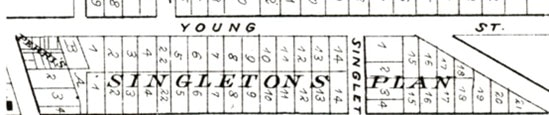 9 8
YOUNG ST.
PERRIS
3 1 2 3 4 22 5 6 7 8 9 10 11 12 13 14 1 15 16 17
SINGLETONS PLAN
SINGLET
4 1 2 3 4 22 5 6 7 8 9 10 11 12 13 14 2 3 4 15 15 16 17 18 19 20 21
3 4